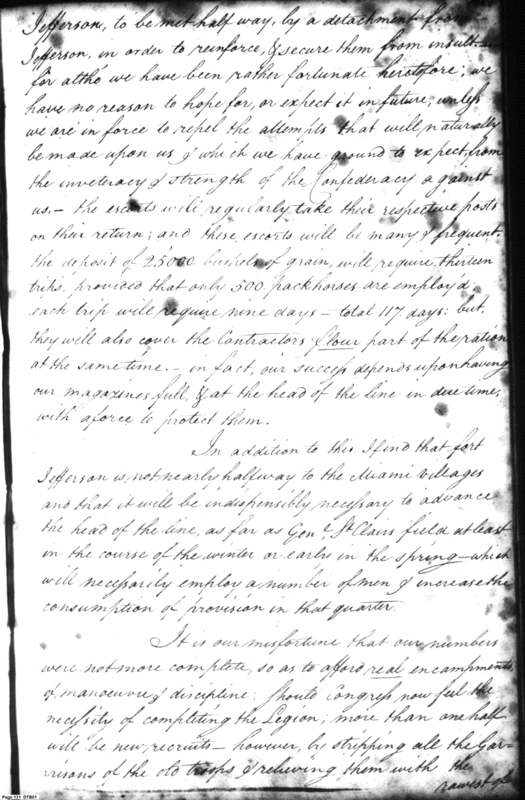 Jefferson, to be met half way, by a detachment from
Jefferson, in order to reinforce, & secure them from insult—
for altho we have been rather fortunate heretofore; we
have no reason to hope for, or expect it in future, unless
we are in force to repel the attempts that will, naturally
be made upon us & which we have ground to expect, from
the inveteracy & strength of the Confederacy against
us.— the escorts will regularly take their respective posts
on their return; and these escorts will be many & frequent,
the deposit of 25000 bushels of grain, will require thirteen
trips, provided that only 500 packhorses are employ'd,
each trip will require nine days — total 117 days: but,
they will also cover the Contractors flour part of the ration
at the same time. — in fact, our success depends upon having
our magazines full, & at the head of the line in due time,
with a force to protect them.
In addition to this I find that fort
Jefferson is not nearly halfway to the Miami Villages
and that it will be indispensibly necessary to advance
the head of the line, as far as Genl. St. Clairs field at least
in the course of the winter or early in the spring — which
will necessarily employ a number of men & increase the
consumption of provision in that quarter.
It is our misfortune that our numbers
were not more complete, so as to afford real encampments
of manoeuvre & discipline: Should Congress now feel the
necessity of completing the Legion; more than one half
will be new recruits — however, by stripping all the Gar-
risons of the old troops & relieving them with the
rawest of
Page 121 DTB01